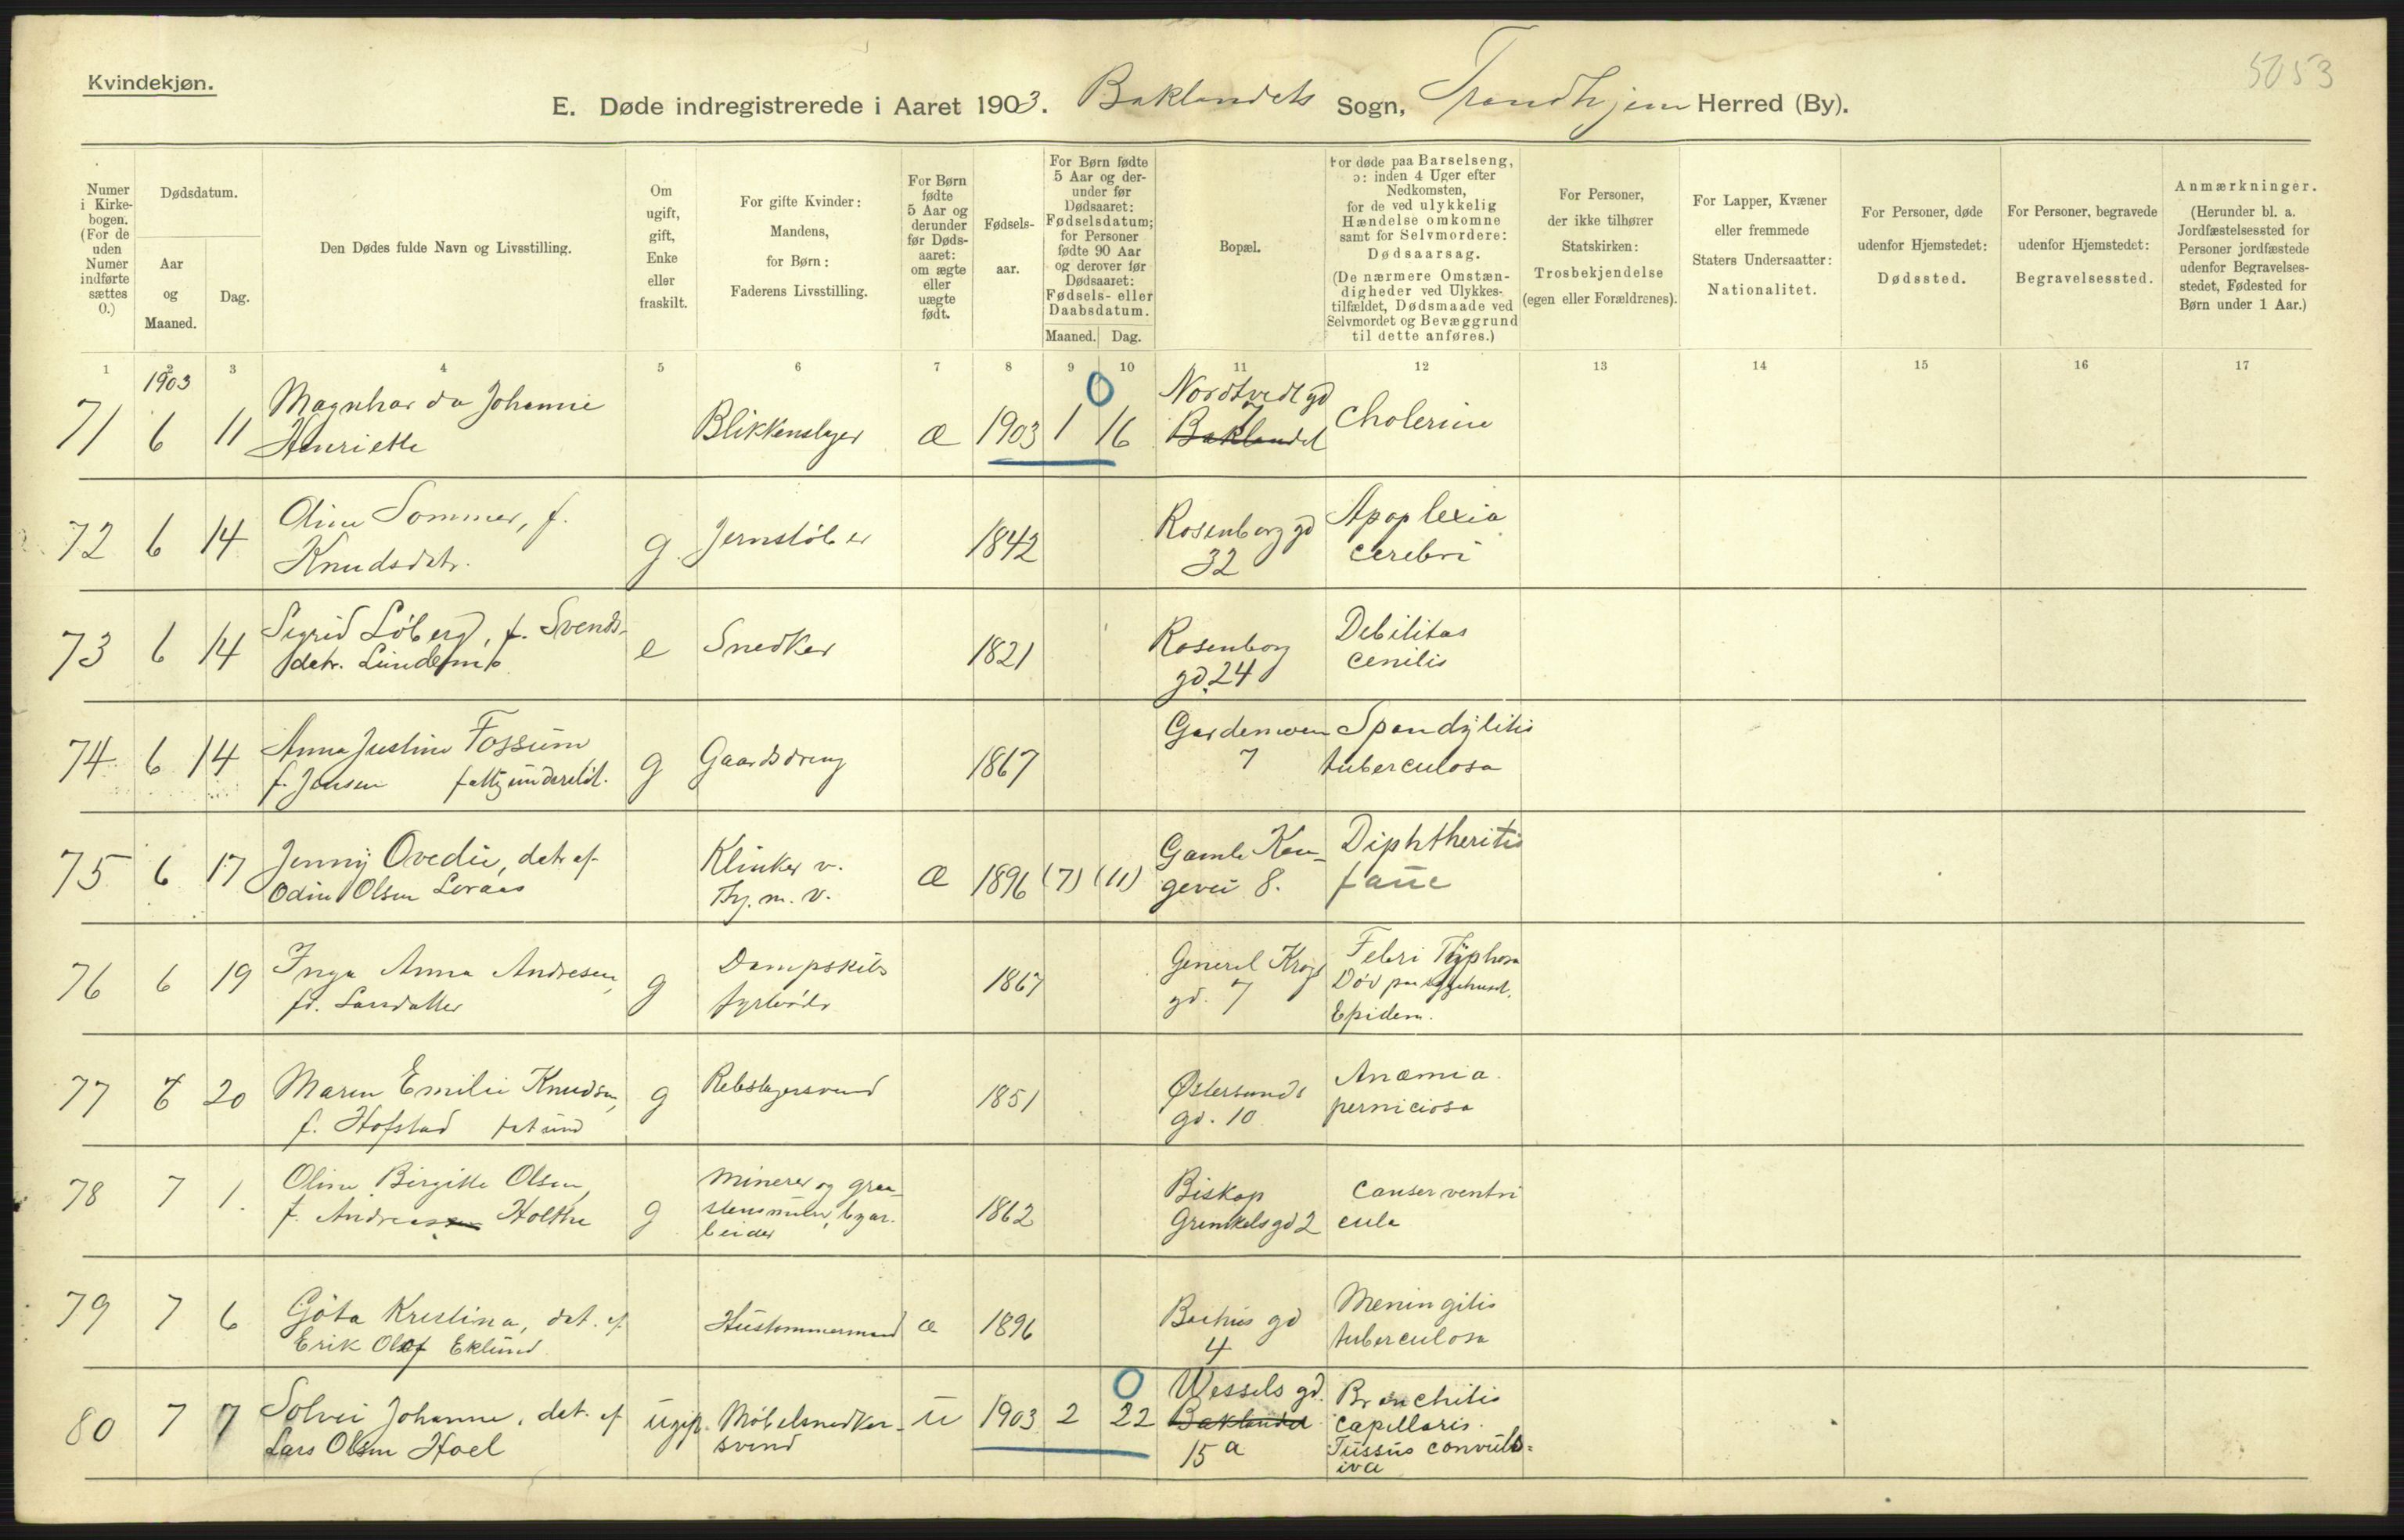 Kvindekjøn.
5053
E. Døde indregistrerede i Aaret 1903. Baklandets Sogn, Trondhjem Herred (By).
Numer
i Kirke-
bogen.
(For de
uden
Numer
indførte
sættes
0.)
Dødsdatum.
Aar
og
Maaned.
Dag.
Den Dødes fulde Navn og Livsstilling.
Om
ugift,
gift,
Enke
eller
fraskilt.
For gifte Kvinder:
Mandens,
for Børn:
Faderens Livsstilling.
For Børn
fødte
5 Aar og
derunder
før Døds-
aaret:
om ægte
eller
uægte
født.
Fødsels-
aar.
For Børn fødte
5 Aar og der-
under før
Dødsaaret:
Fødselsdatum;
for Personer
fødte 90 Aar
og derover før
Dødsaaret:
Fødsels- eller
Daabsdatum.
Maaned. Dag.
Bopæl.
For døde paa Barselseng,
ɔ: inden 4 Uger efter
Nedkomsten,
for de ved ulykkelig
Hændelse omkomne
samt for Selvmordere:
Dødsaarsag.
(De nærmere Omstæn-
digheder ved Ulykkes-
tilfældet, Dødsmaade ved
Selvmordet og Bevæggrund
til dette anføres.)
For Personer,
der ikke tilhører
Statskirken:
Trosbekjendelse
(egen eller Forældrenes).
For Lapper, Kvæner
eller fremmede
Staters Undersaatter:
Nationalitet.
For Personer, døde
udenfor Hjemstedet:
Dødssted.
For Personer, begravede
udenfor Hjemstedet:
Begravelsessted.
Anmærkninger.
(Herunder bl. a.
Jordfæstelsessted for
Personer jordfæstede
udenfor Begravelses-
stedet, Fødested for
Børn under 1 Aar.)
1 2 3 4 5 6 7 8 9 10 11 12 13 14 15 16 17
1903
Magnhar da Johanne 0 Nordtvedt gd
71 6 11 Henriette Blikkenslager æ 1903 1 16 Baklandet 7 Cholerine
Oline Sommer, f. Rosenborg gd Apoplexia
72 6 14 Knudsdatr. g Jernstøber 1842 32 cerebri
Sigrid Løberg, f. Svends- Rosenborg Debilitas
73 6 14 datr. e Snedker 1821 gd. 24 cenilis
Anna Justine Fossum Gardemoen Spondylitis
74 6 14 f. Jensen fattigunderstøt. g Gaardsdreng 1867 7 tuberculosa
Jenny Ovedie, datr af Klinker v. Gamle Kon- Diphtheritis
75 6 17 Odin Olsen Loraas Thj. m. v. æ 1896 (7) (11) gevei 8. fauc
Inga Anna Andresen, Dampskibs General Krogs Febri Typhosa
76 6 19 fd. g fyrbøder 1867 gd. 7 Død paa sygehuset.
Epidem.
Maren Emilie Knudsen, Østersunds Anæmia
77 6 20 f. Hofstad fat und g Rebslagersvend 1851 gd. 10 perniciosa
Oline Birgitte Olsen, Minerer og graa- Biskop Canser ventri
78 7 1. f. Andreassen Holthe g stensmurer, byar- 1862 Grimkelsgd 2 cula
beider
Göta Kristina, dat. af Bachus gd Meningitis
79 7 6 Erik Olof Eklund Hustømmermand æ 1896 4 tuberculosa
Solvei Johanne, dat. af 0 Wessels gd. Bronchitis
80 7 7 Lars Olsen Hoel ugift. Møbelsnedker- u 1903 2 22 Baklandet capillaris.
svend 15 a Tussus convuls=
iva